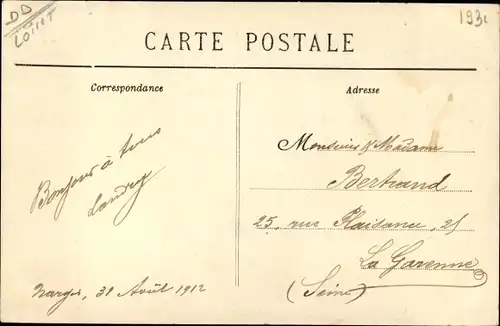 DD
Loiret
193
CARTE POSTALE
Correspondance
Adresse
Bonjour à tous
Landry
Nargis, 31 Août 1912
Monsieur & Madame
Bertrand
25, rue Plaisance, 25
La Garenne
(Seine)